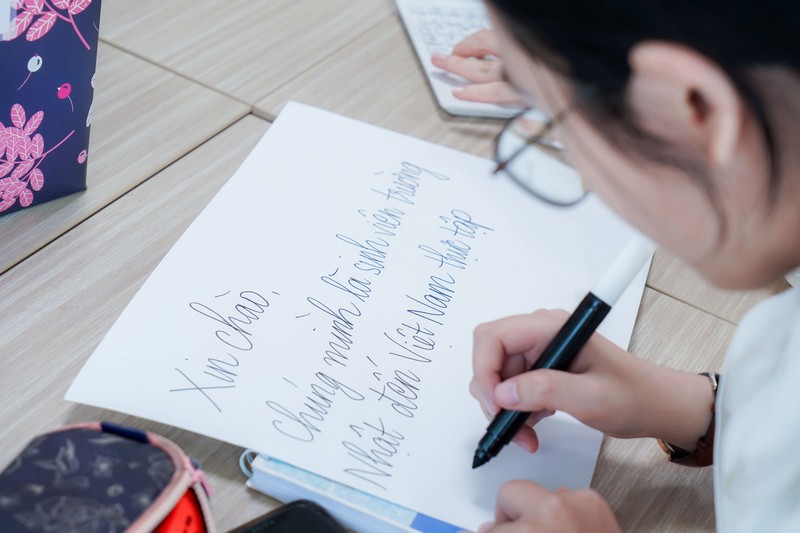 Xin chào,
Chúng mình là sinh viên trường
Nhật đến Việt Nam thực tập